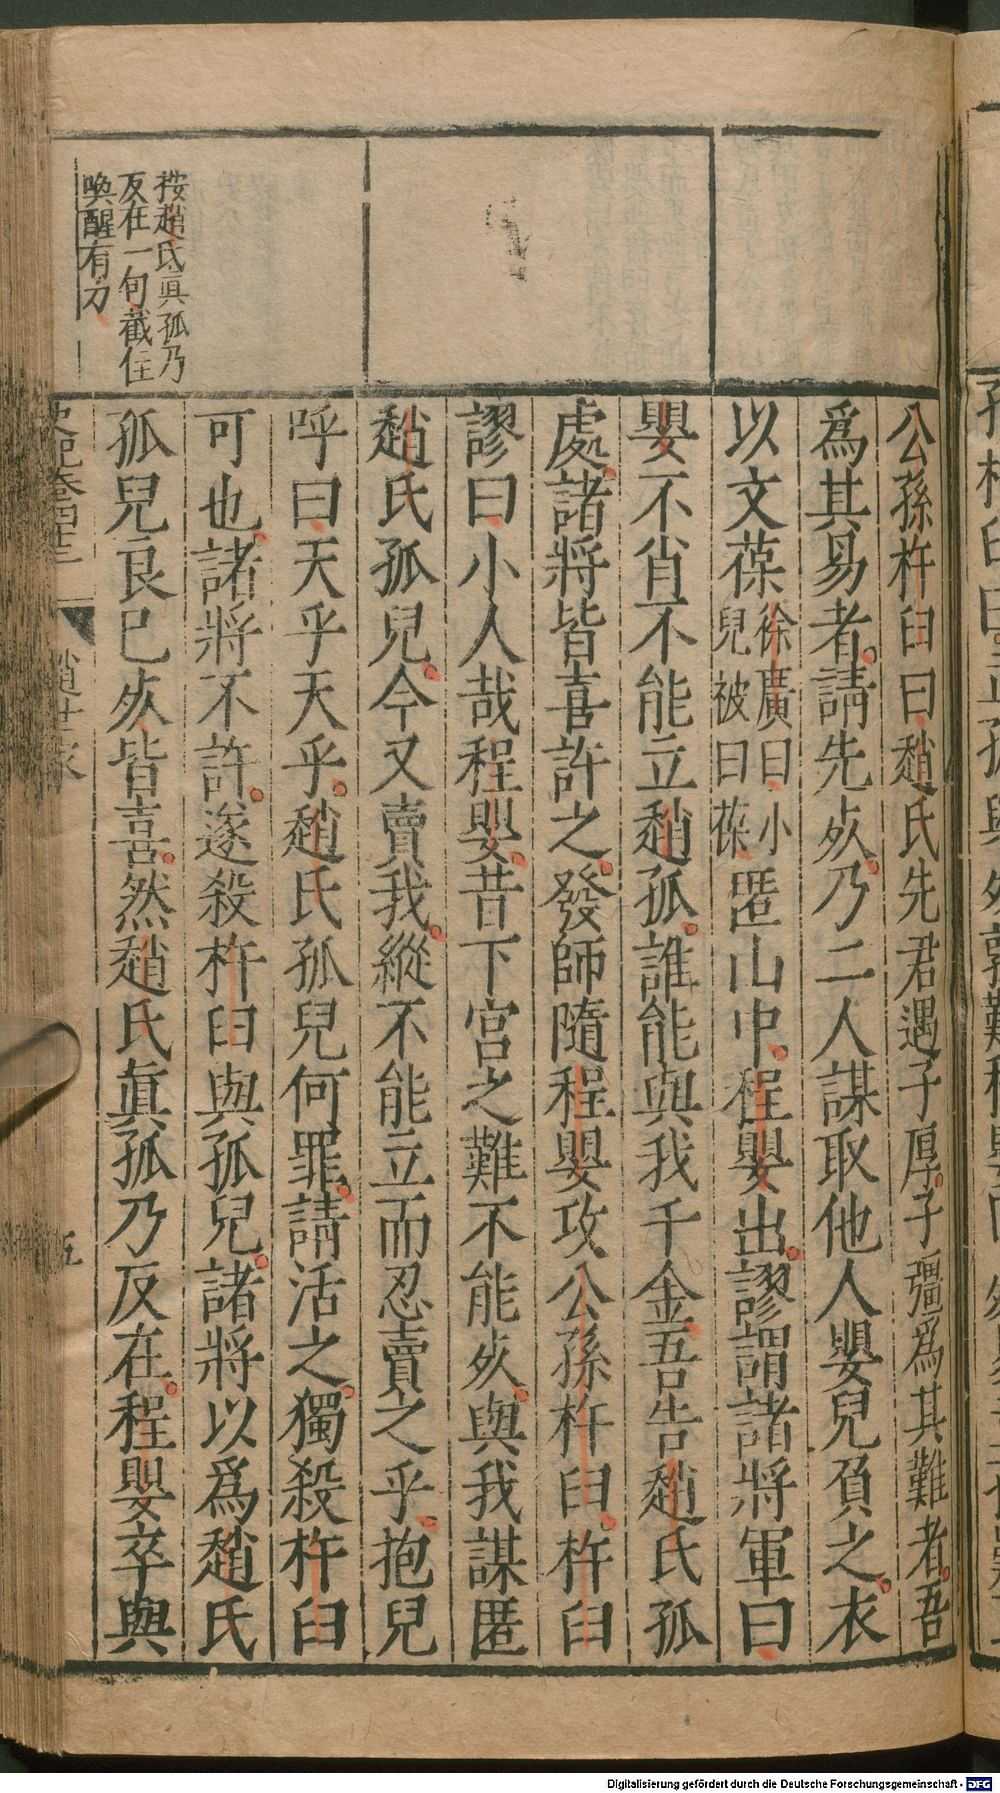 公孫杵臼曰趙氏先君遇子厚子彊爲其難者吾
爲其易者請先𣦸乃二人謀取他人嬰兒負之衣
以文葆徐廣曰小兒被曰葆匿山中程嬰出謬謂諸將軍曰
嬰不肖不能立趙孤誰能與我千金吾告趙氏孤
處諸將皆喜許之發師隨程嬰攻公孫杵臼杵臼
謬曰小人哉程嬰昔下宮之難不能𣦸與我謀匿
趙氏孤兒今又賣我縱不能立而忍賣之乎抱兒
呼曰天乎天乎趙氏孤兒何罪請活之獨殺杵臼
可也諸將不許遂殺杵臼與孤兒諸將以爲趙氏
孤兒良已𣦸皆喜然趙氏眞孤乃反在程嬰卒與
按趙氏眞孤乃
反在一句截住
喚醒有力
史記卷四十三
趙世家
五
Digitalisierung gefördert durch die Deutsche Forschungsgemeinschaft - DFG